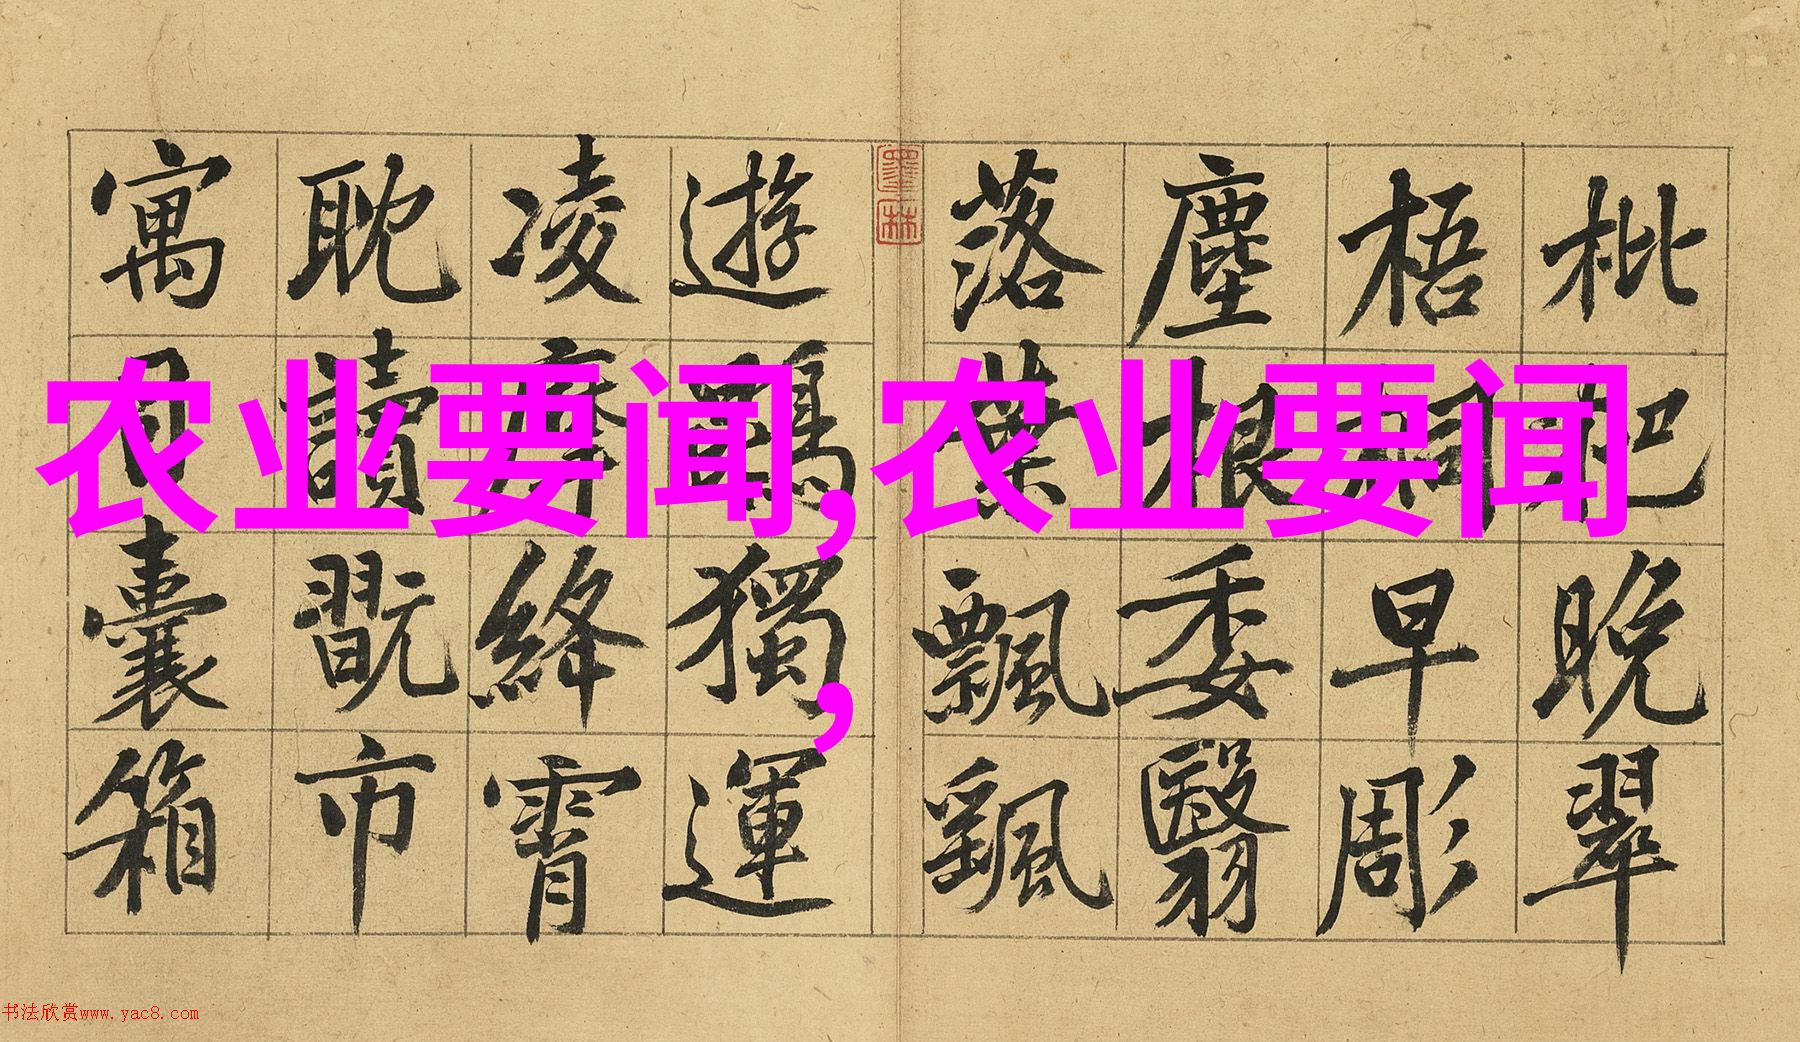 农业要闻,农业要闻
,
枇杷晚翠
梧桐早彫
塵根委翳
落葉飄飖
墨林
遊鵾獨運
凌摩絳霄
耽讀翫市
寓目囊箱
书法欣赏www.yac8.com